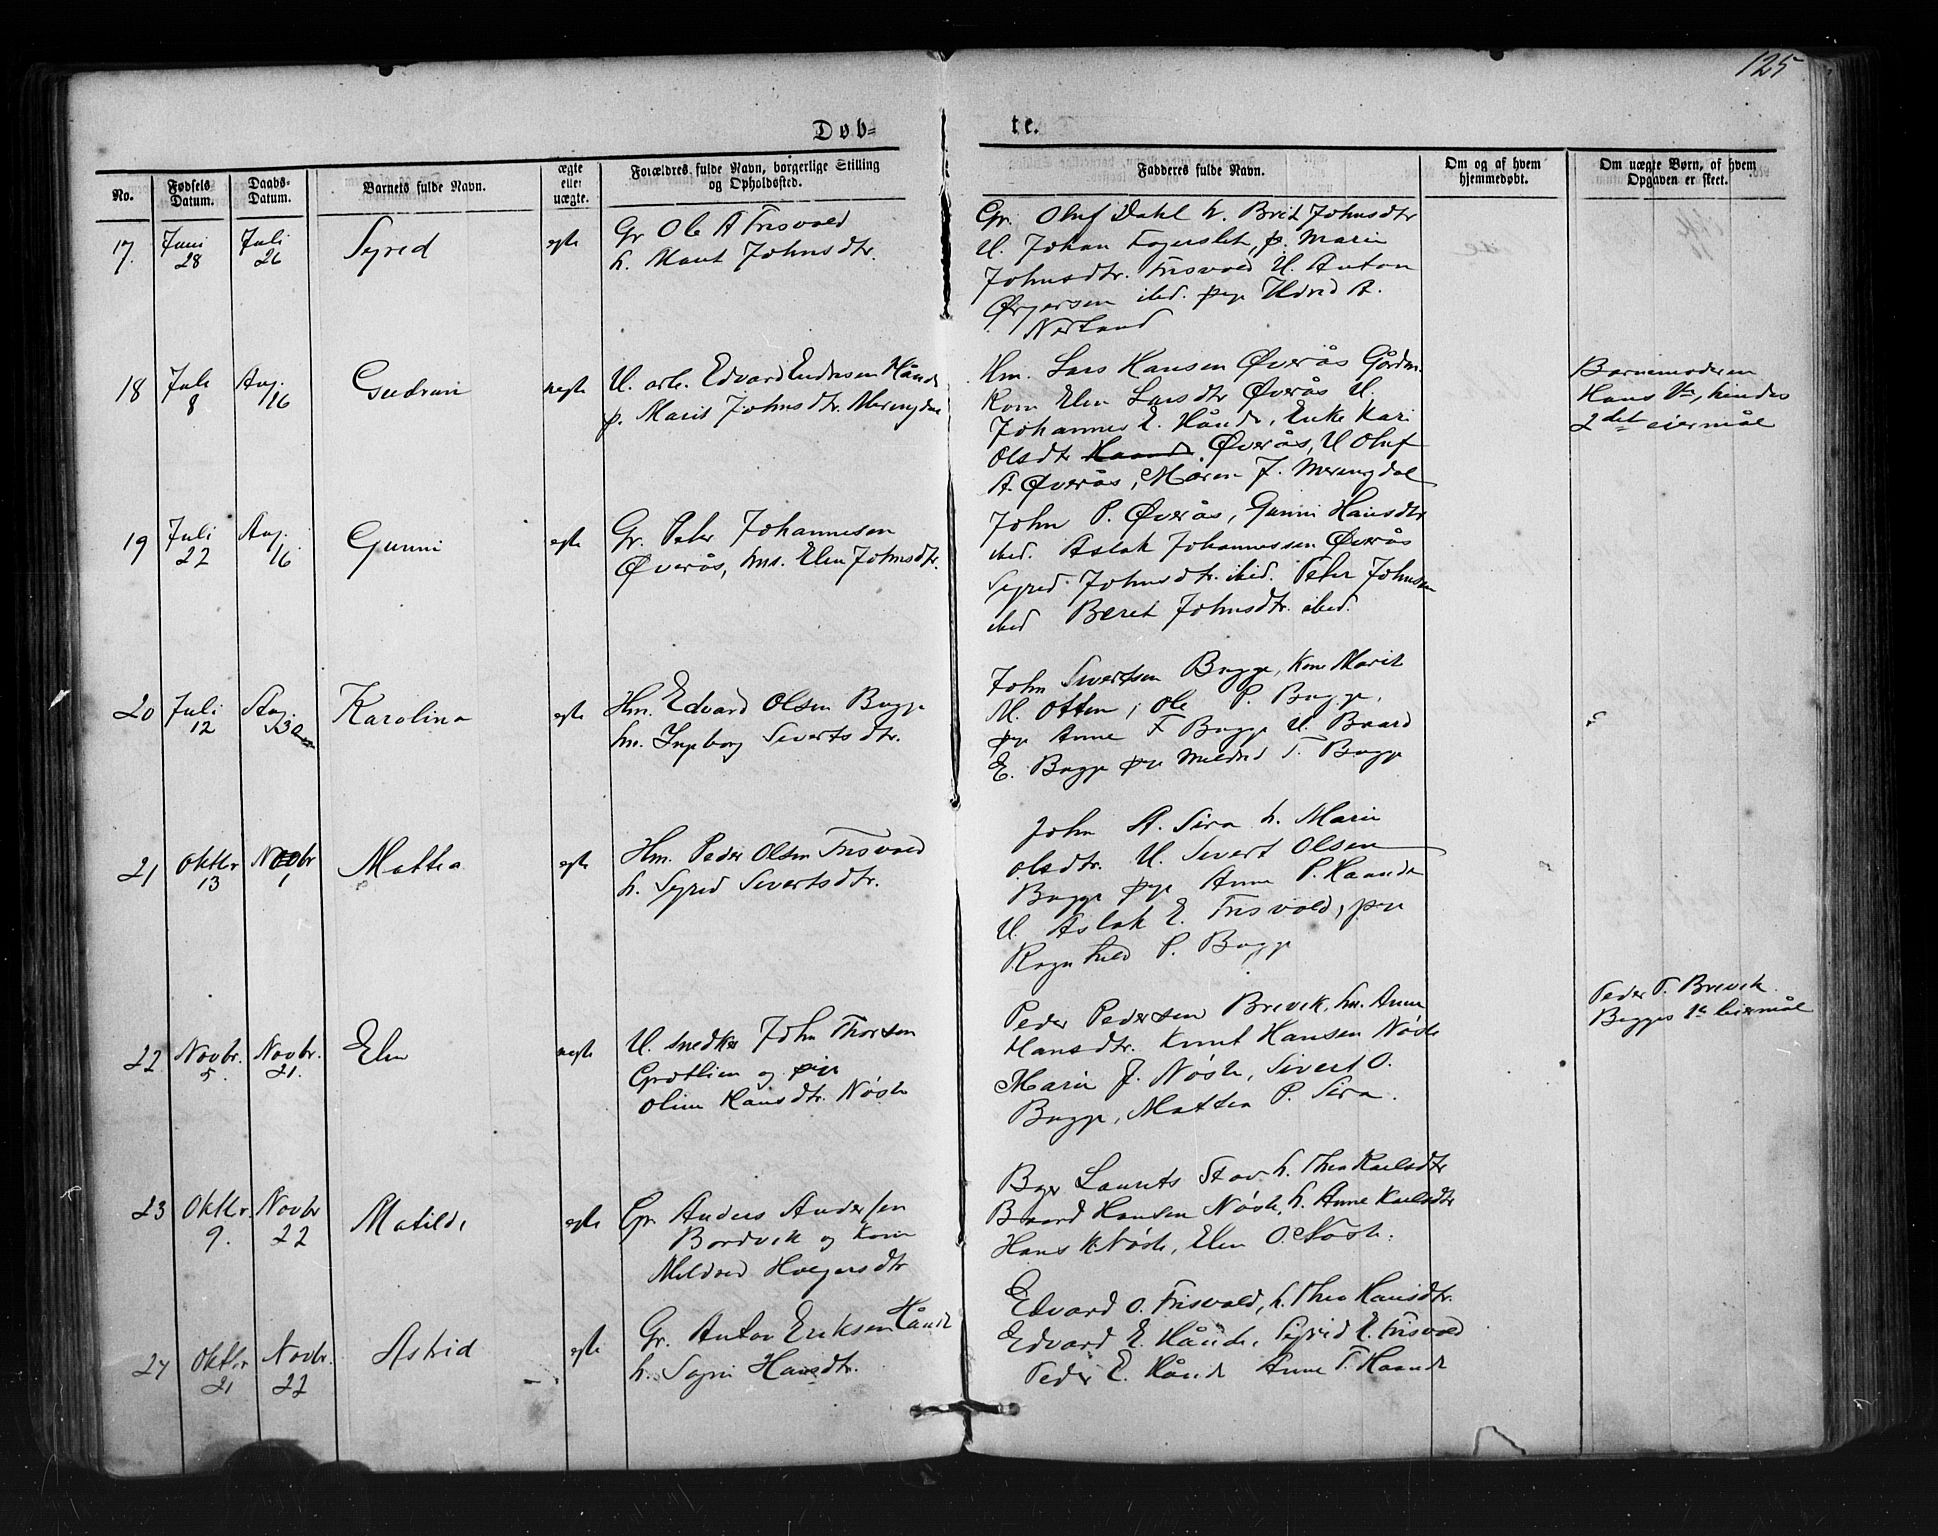 125
Døb=
te.
No.
Fødsels Datum.
Daabs-Datum.
Barnets fulde Navn.
ægte eller uægte.
Forældres fulde Navn, borgerlige Stilling og Opholdssted.
Fadderes fulde Navn.
Om og af hvem hjemmedøbt.
Om uægte Børn, af hvem Opgaven er skeet.
17.
Juni 28
Juli 26
Syred
egte
Gr Ole A Frisvold
h. Marit Johnsdtr.
Gr. Oluf Dahl h. Brit Johnsdtr
U. Johan Fagerslet, p. Marie
Johnsdtr. Frisvold U. Anton
ibd. pge A.
Nerland
18
Juli 8
Aug. 16
Gudrun
uegte
U. arb. Edvard Endresen Hånde
p. Marit Johnsdtr. Meringdal
Hm. Lars Hansen Øverås Gårdm.
Kone Elen Larsdtr Øverås U.
Johannes E. Hånde, Enke Kari
Olsdtr Haande Øverås, U Oluf
A. Øverås, Maren J. Meringdal
Barnemoderen
Hans 1ste, hendes
2det leiermål
19
Juli 22
Aug. 16
Gunni
egte
Gr. Peter Johannesen
Øverås, hus. Elen Johnsdtr.
John P. Øverås, Gunni Hansdtr
ibid. Aslak Johannessen Øverås
Syred Johnsdtr. ibid. Peter Johnsen
ibid Beret Johnsdtr. ibid.
20
Juli 12
Aug. 30
Karolina
egte
Hm. Edvard Olsen Bugge
hu. Ingeborg Sivertsdtr.
John Sivertsen Bugge, Kone Marit
M. Otten, Ole P. Bugge,
pge Anne F Bugge U. Baard
E. Bugge pge Mildrid T. Bugge
21
Oktbr 13
Novbr 1
Mattea
egte
Hm. Peder Olsen Frisvold
h. Syred Sivertsdtr.
John A. Sira h. Marie
Olsdtr. U. Sivert Olsen
Bugge pge Anne P. Haande
U. Aslak E. Frisvold, pge
Ragnhild P. Bugge
22
Novbr. 5.
Novbr. 21.
Elen
uegte
U. snedker John Thorsen
Grotlien og pige
Oline Hansdtr. Nøste
Peder Pedersen Brevik, hu. Anne
Hansdtr. Knut Hansen Nøste
Marie J. Nøste, Sivert O.
Bugge, Mattea P. Sira.
Peder P. Brevik
Begges 1ste leiermål
23
Oktbr. 9.
Novbr 22
Matilde
egte
Gr. Anders Andersen
Bordvik og Kone
Mildred Holgersdtr
Bger Laurits Stav h. Thea Karlsdtr
Baard Hansen Nøste, h. Anne Karlsdtr
Hans K. Nøste, Elen O. Nøste.
24
Oktbr 21
Novbr. 22
Astrid
egte
Gr. Anton Eriksen Hånde
h. Sogni Hansdtr.
Edvard O. Frisvold, h. Thea Hansdtr.
Edvard E. Hånde, Sigrid E. Frisvold
Peder E. Hånde Anne T. Haande